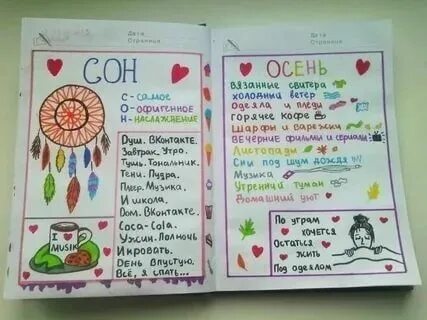 Дата
Страница
СОН
С - САМОЕ
О - ОФИГЕННОЕ
Н - НАСЛАЖДЕНИЕ
Душ. ВКонтакте.
Завтрак. Утро.
Тушь. Тональник.
Тени. Пудра.
Плеер. Музыка.
И школа.
Дом. ВКонтакте.
Coca-Cola.
Ужин. Полночь
И кровать.
День впустую.
Всё, я спать...
I
MUSIK
Дата
Страница
ОСЕНЬ
Вязанные свитера
Холодный ветер
Одеяла и пледы
Горячее кофе
Шарфы и варежки
Вечерние фильмы и сериалы
Листопады
Сны под шум дождя
Музыка
Утренний туман
Домашний уют
По утрам
хочется
остаться
жить
Под одеялом